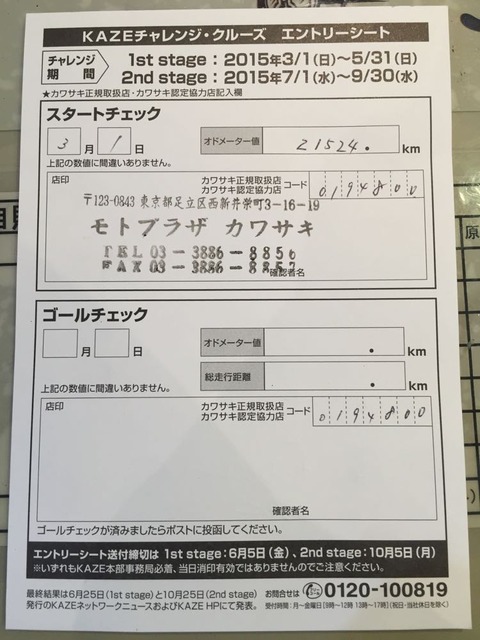 KAZEチャレンジ・クルーズ エントリーシート
チャレンジ期間
1st stage：2015年3/1(日)〜5/31(日)
2nd stage：2015年7/1(水)〜9/30(水)
★カワサキ正規取扱店・カワサキ認定協力店記入欄
スタートチェック
3月1日
オドメーター値 21524. km
上記の数値に間違いありません。
店印
カワサキ正規取扱店
カワサキ認定協力店 コード 0194800
〒123-0843 東京都足立区西新井栄町3-16-19
モトプラザ カワサキ
TEL 03-3886-8856
FAX 03-3886-8857
確認者名
ゴールチェック
月 日
オドメーター値 . km
総走行距離 . km
上記の数値に間違いありません。
店印
カワサキ正規取扱店
カワサキ認定協力店 コード 0194800
確認者名
ゴールチェックが済みましたらポストに投函してください。
エントリーシート送付締切は 1st stage：6月5日(金)、2nd stage：10月5日(月)
※いずれもKAZE本部事務局必着、当日消印有効ではありませんのでご注意ください。
最終結果は6月25日(1st stage)と10月25日(2nd stage)
発行のKAZEネットワークニュースおよびKAZE HPにて発表。
お問合せは 0120-100819
受付時間：月〜金曜日［9時〜12時 13時〜17時］(祝日・当社休日を除く)
原